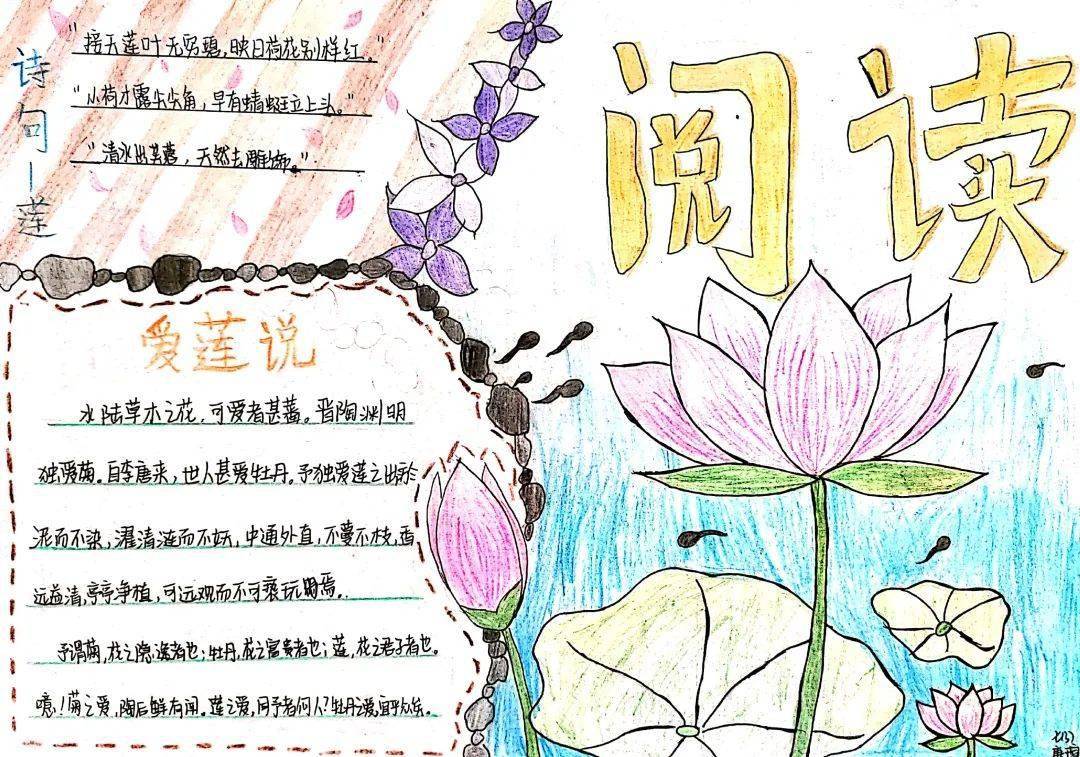 阅读
诗句—莲
"接天莲叶无穷碧,映日荷花别样红。"
"小荷才露尖尖角,早有蜻蜓立上头。"
"清水出芙蓉,天然去雕饰。"
爱莲说
水陆草木之花,可爱者甚蕃。晋陶渊明
独爱菊。自李唐来,世人甚爱牡丹。予独爱莲之出淤
泥而不染,濯清涟而不妖,中通外直,不蔓不枝,香
远益清,亭亭净植,可远观而不可亵玩焉。
予谓菊,花之隐逸者也;牡丹,花之富贵者也;莲,花之君子者也。
噫!菊之爱,陶后鲜有闻。莲之爱,同予者何人?牡丹之爱,宜乎众矣。